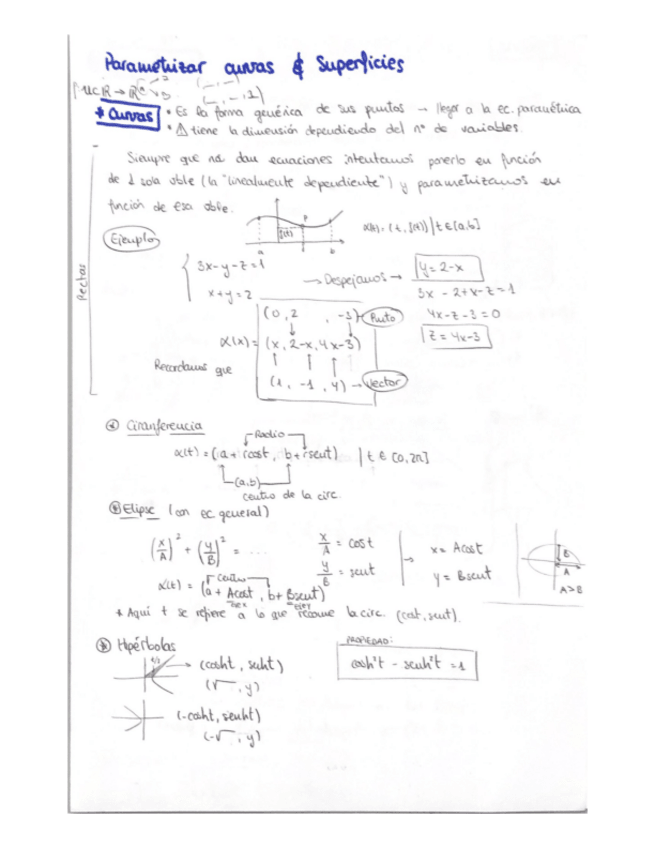 Parametrizar curvas & Superficies
* Curvas • Es la forma genérica de sus puntos → llegar a la ec. paramétrica
• ⚠ tiene la dimensión dependiendo del nº de variables.
Siempre que nos dan ecuaciones intentamos ponerlo en función
de 1 sola vble (la "linealmente dependiente") y parametrizamos en
función de esa vble.
Ejemplo
α(t) = (t, f(t)) | t ∈ [a,b]
f(t)
P
a
b
Rectas
3x-y-z=1
x+y=2
→ Despejamos →
y=2-x
3x - 2+x-z=1
4x-z-3=0
z=4x-3
(0, 2, -3) → Punto
α(x) = (x, 2-x, 4x-3)
Recordamos que
(1, -1, 4) → Vector
Circunferencia
Radio
α(t) = (a+rcost, b+rsent) | t ∈ [0,2π]
(a,b)
centro de la circ.
Elipse (con ec general)
(x/A)² + (y/B)² = ...
x/A = cost
y/B = sent
x = Acost
y = Bsent
B
A
A>B
Centro
α(t) = (a + Acost, b + Bsent)
eje x
eje y
* Aquí t se refiere a lo que recorre la circ. (cost, sent).
Hipérbolas
(cosht, senht)
(√ , y)
PROPIEDAD:
cosh²t - senh²t = 1
(-cosht, senht)
(-√ , y)